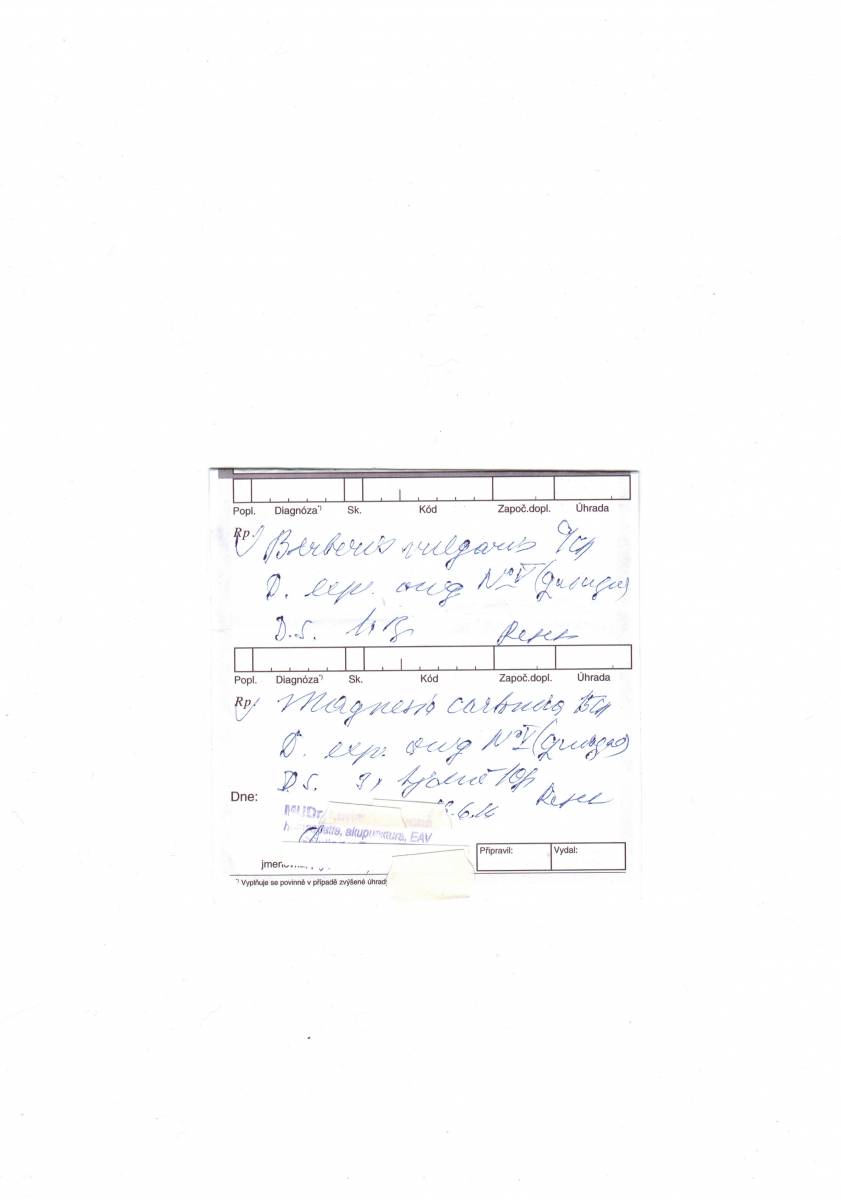 Popl. Diagnóza*) Sk. Kód Započ.dopl. Úhrada
Rp. Berberis vulgaris
D. exp. orig No V (quinque)
D.S.
Repet
Popl. Diagnóza*) Sk. Kód Započ.dopl. Úhrada
Rp. Magnesia carbonica 15 CH
D. exp. orig No V (quinque)
D.S. 3x týdně
Repet
Dne:
MUDr.
akupunktura, EAV
Připravil: Vydal:
*) Vyplňuje se povinně v případě zvýšené úhrady